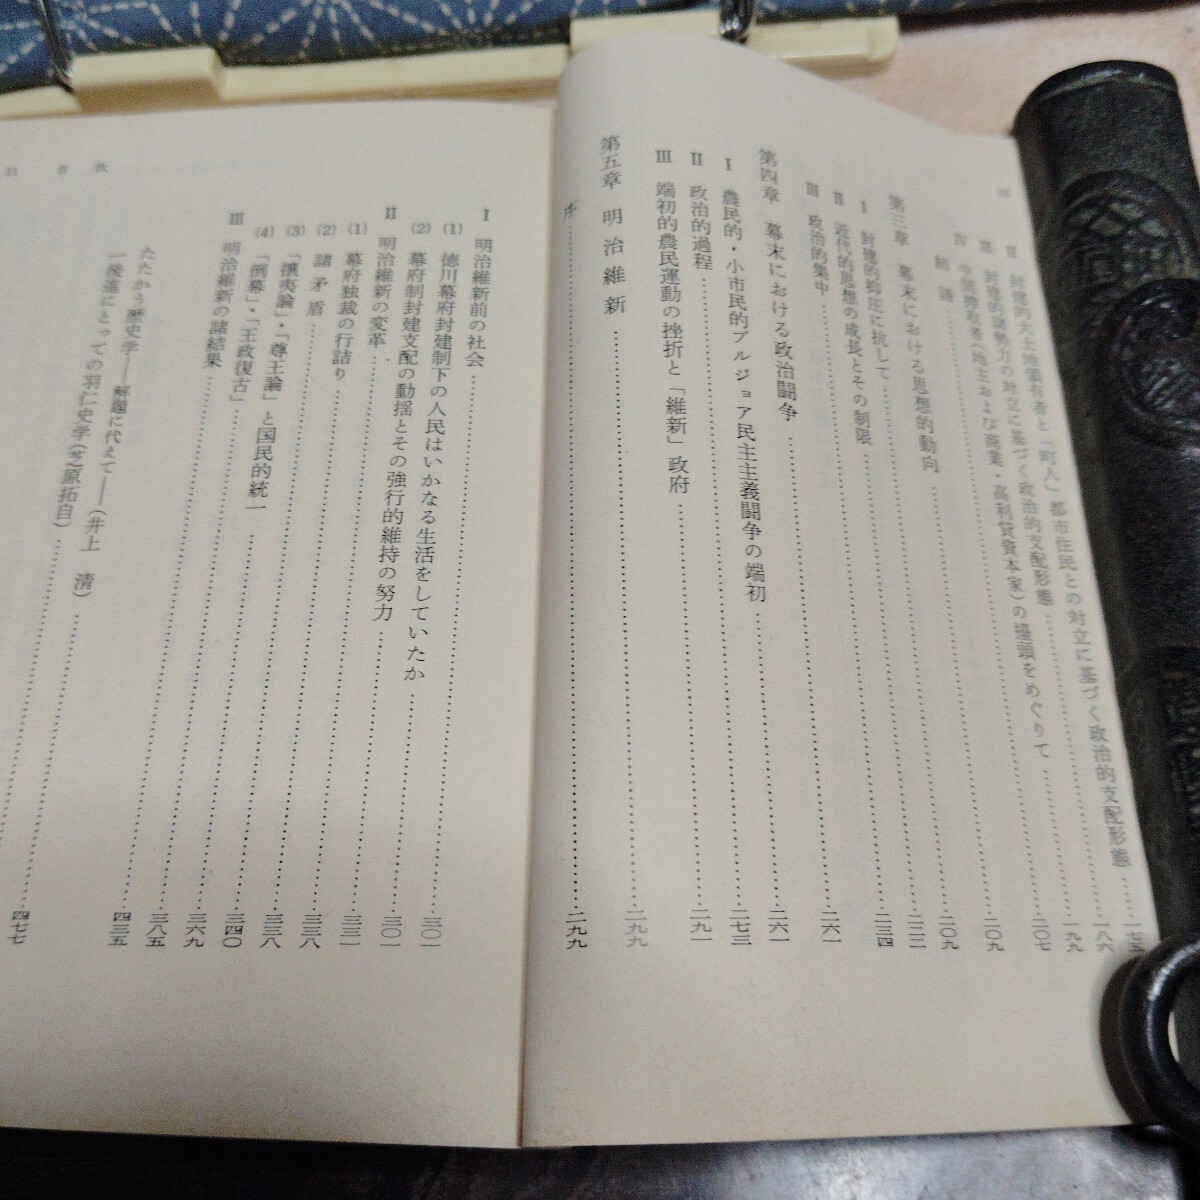 II 封建的大土地領有者と「町人」都市住民との対立に基づく政治的支配形態……一七五
III 封建的諸勢力の対立に基づく政治的支配形態……一八六
IV 中間搾取者(地主および商業・高利貸資本家)の擡頭をめぐりて……一九九
結語……二〇七
第三章 幕末における思想的動向……二〇九
I 封建的抑圧に抗して……二〇九
II 近代的思想の成長とその制限……二二二
III 政治的集中……二三四
第四章 幕末における政治闘争……二六一
I 農民的・小市民的ブルジョア民主主義闘争の端初……二六一
II 政治的過程……二七三
III 端初的農民運動の挫折と「維新」政府……二九一
第五章 明治維新……二九九
序……二九九
I 明治維新前の社会……三〇一
(1) 徳川幕府封建制下の人民はいかなる生活をしていたか……三〇一
(2) 幕府制封建支配の動揺とその強行的維持の努力……三三一
II 明治維新の変革……三三八
(1) 幕府独裁の行詰り……三三八
(2) 諸矛盾……三四〇
(3) 「攘夷論」・「尊王論」と国民的統一……三六九
(4) 「倒幕」・「王政復古」……三八五
III 明治維新の諸結果……四三五
たたかう歴史学――解題に代えて――(井上 清)……四七七
一後進にとっての羽仁史学(芝原拓自)……